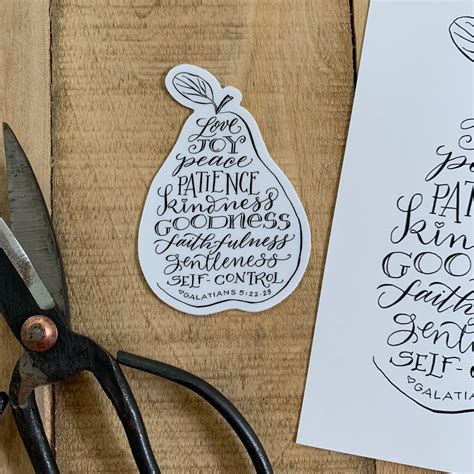 Love
JOY
peace
PATIENCE
kindness
GOODNESS
faithfulness
gentleness
SELF-CONTROL
♡GALATIANS 5:22-23
J
peac
PATI
kindn
GOOD
faith
gentle
SELF-C
♡GALATIA